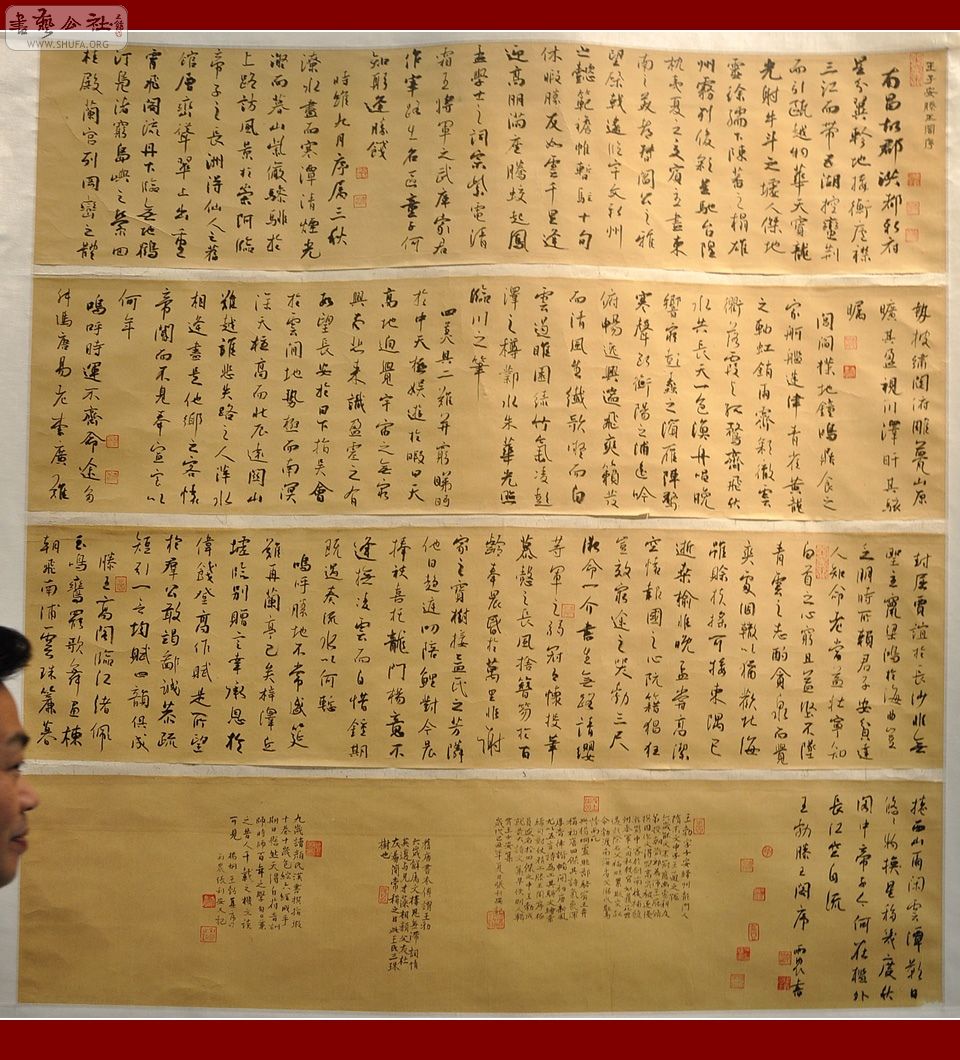 書藝公社
WWW.SHUFA.ORG
王子安滕王閣序
南昌故郡洪都新府
星分翼軫地接衡廬襟
三江而帶五湖控蠻荊
而引甌越物華天寶龍
光射牛斗之墟人傑地
靈徐孺下陳蕃之榻雄
州霧列俊彩星馳臺隍
枕夷夏之交賓主盡東
南之美都督閻公之雅
望棨戟遙臨宇文新州
之懿範襜帷暫駐十旬
休暇勝友如雲千里逢
迎高朋滿座騰蛟起鳳
孟學士之詞宗紫電清
霜王將軍之武庫家君
作宰路出名區童子何
知躬逢勝餞
時維九月序屬三秋
潦水盡而寒潭清煙光
凝而暮山紫儼驂騑於
上路訪風景於崇阿臨
帝子之長洲得仙人之舊
館層巒聳翠上出重
霄飛閣流丹下臨無地鶴
汀鳧渚窮島嶼之縈回
桂殿蘭宮列岡巒之體
勢披繡闥俯雕甍山原
曠其盈視川澤盱其駭
矚
閭閻撲地鐘鳴鼎食之
家舸艦迷津青雀黃龍
之軸虹銷雨霽彩徹雲
衢落霞與孤鶩齊飛秋
水共長天一色漁舟唱晚
響窮彭蠡之濱雁陣驚
寒聲斷衡陽之浦遙吟
俯暢逸興遄飛爽籟發
而清風生纖歌凝而白
雲遏睢園綠竹氣凌彭
澤之樽鄴水朱華光照
臨川之筆
四美具二難并窮睇眄
於中天極娛遊於暇日天
高地迥覺宇宙之無窮
興盡悲來識盈虛之有
數望長安於日下指吳會
於雲間地勢極而南溟
深天柱高而北辰遠關山
難越誰悲失路之人萍水
相逢盡是他鄉之客懷
帝閽而不見奉宣室以
何年
嗚呼時運不齊命途多
舛馮唐易老李廣難
封屈賈誼於長沙非無
聖主竄梁鴻於海曲豈
乏明時所賴君子安貧達
人知命老當益壯寧知
白首之心窮且益堅不墜
青雲之志酌貪泉而覺
爽處涸轍以猶歡北海
雖賒扶搖可接東隅已
逝桑榆非晚孟嘗高潔
空懷報國之心阮籍猖狂
豈效窮途之哭勃三尺
微命一介書生無路請纓
等終軍之弱冠有懷投筆
慕愨之長風捨簪笏於百
齡奉晨昏於萬里非謝
家之寶樹接孟氏之芳鄰
他日趨庭叨陪鯉對今茲
捧袂喜托龍門楊意不
逢撫凌雲而自惜鍾期
既遇奏流水以何慚
嗚呼勝地不常盛筵
難再蘭亭已矣梓澤丘
墟臨別贈言幸承恩於
偉餞登高作賦是所望
於群公敢竭鄙誠恭疏
短引一言均賦四韻俱成
滕王高閣臨江渚佩
玉鳴鸞罷歌舞畫棟
朝飛南浦雲珠簾暮
捲西山雨閑雲潭影日
悠悠物換星移幾度秋
閣中帝子今何在檻外
長江空自流
王勃滕王閣序 雨農書